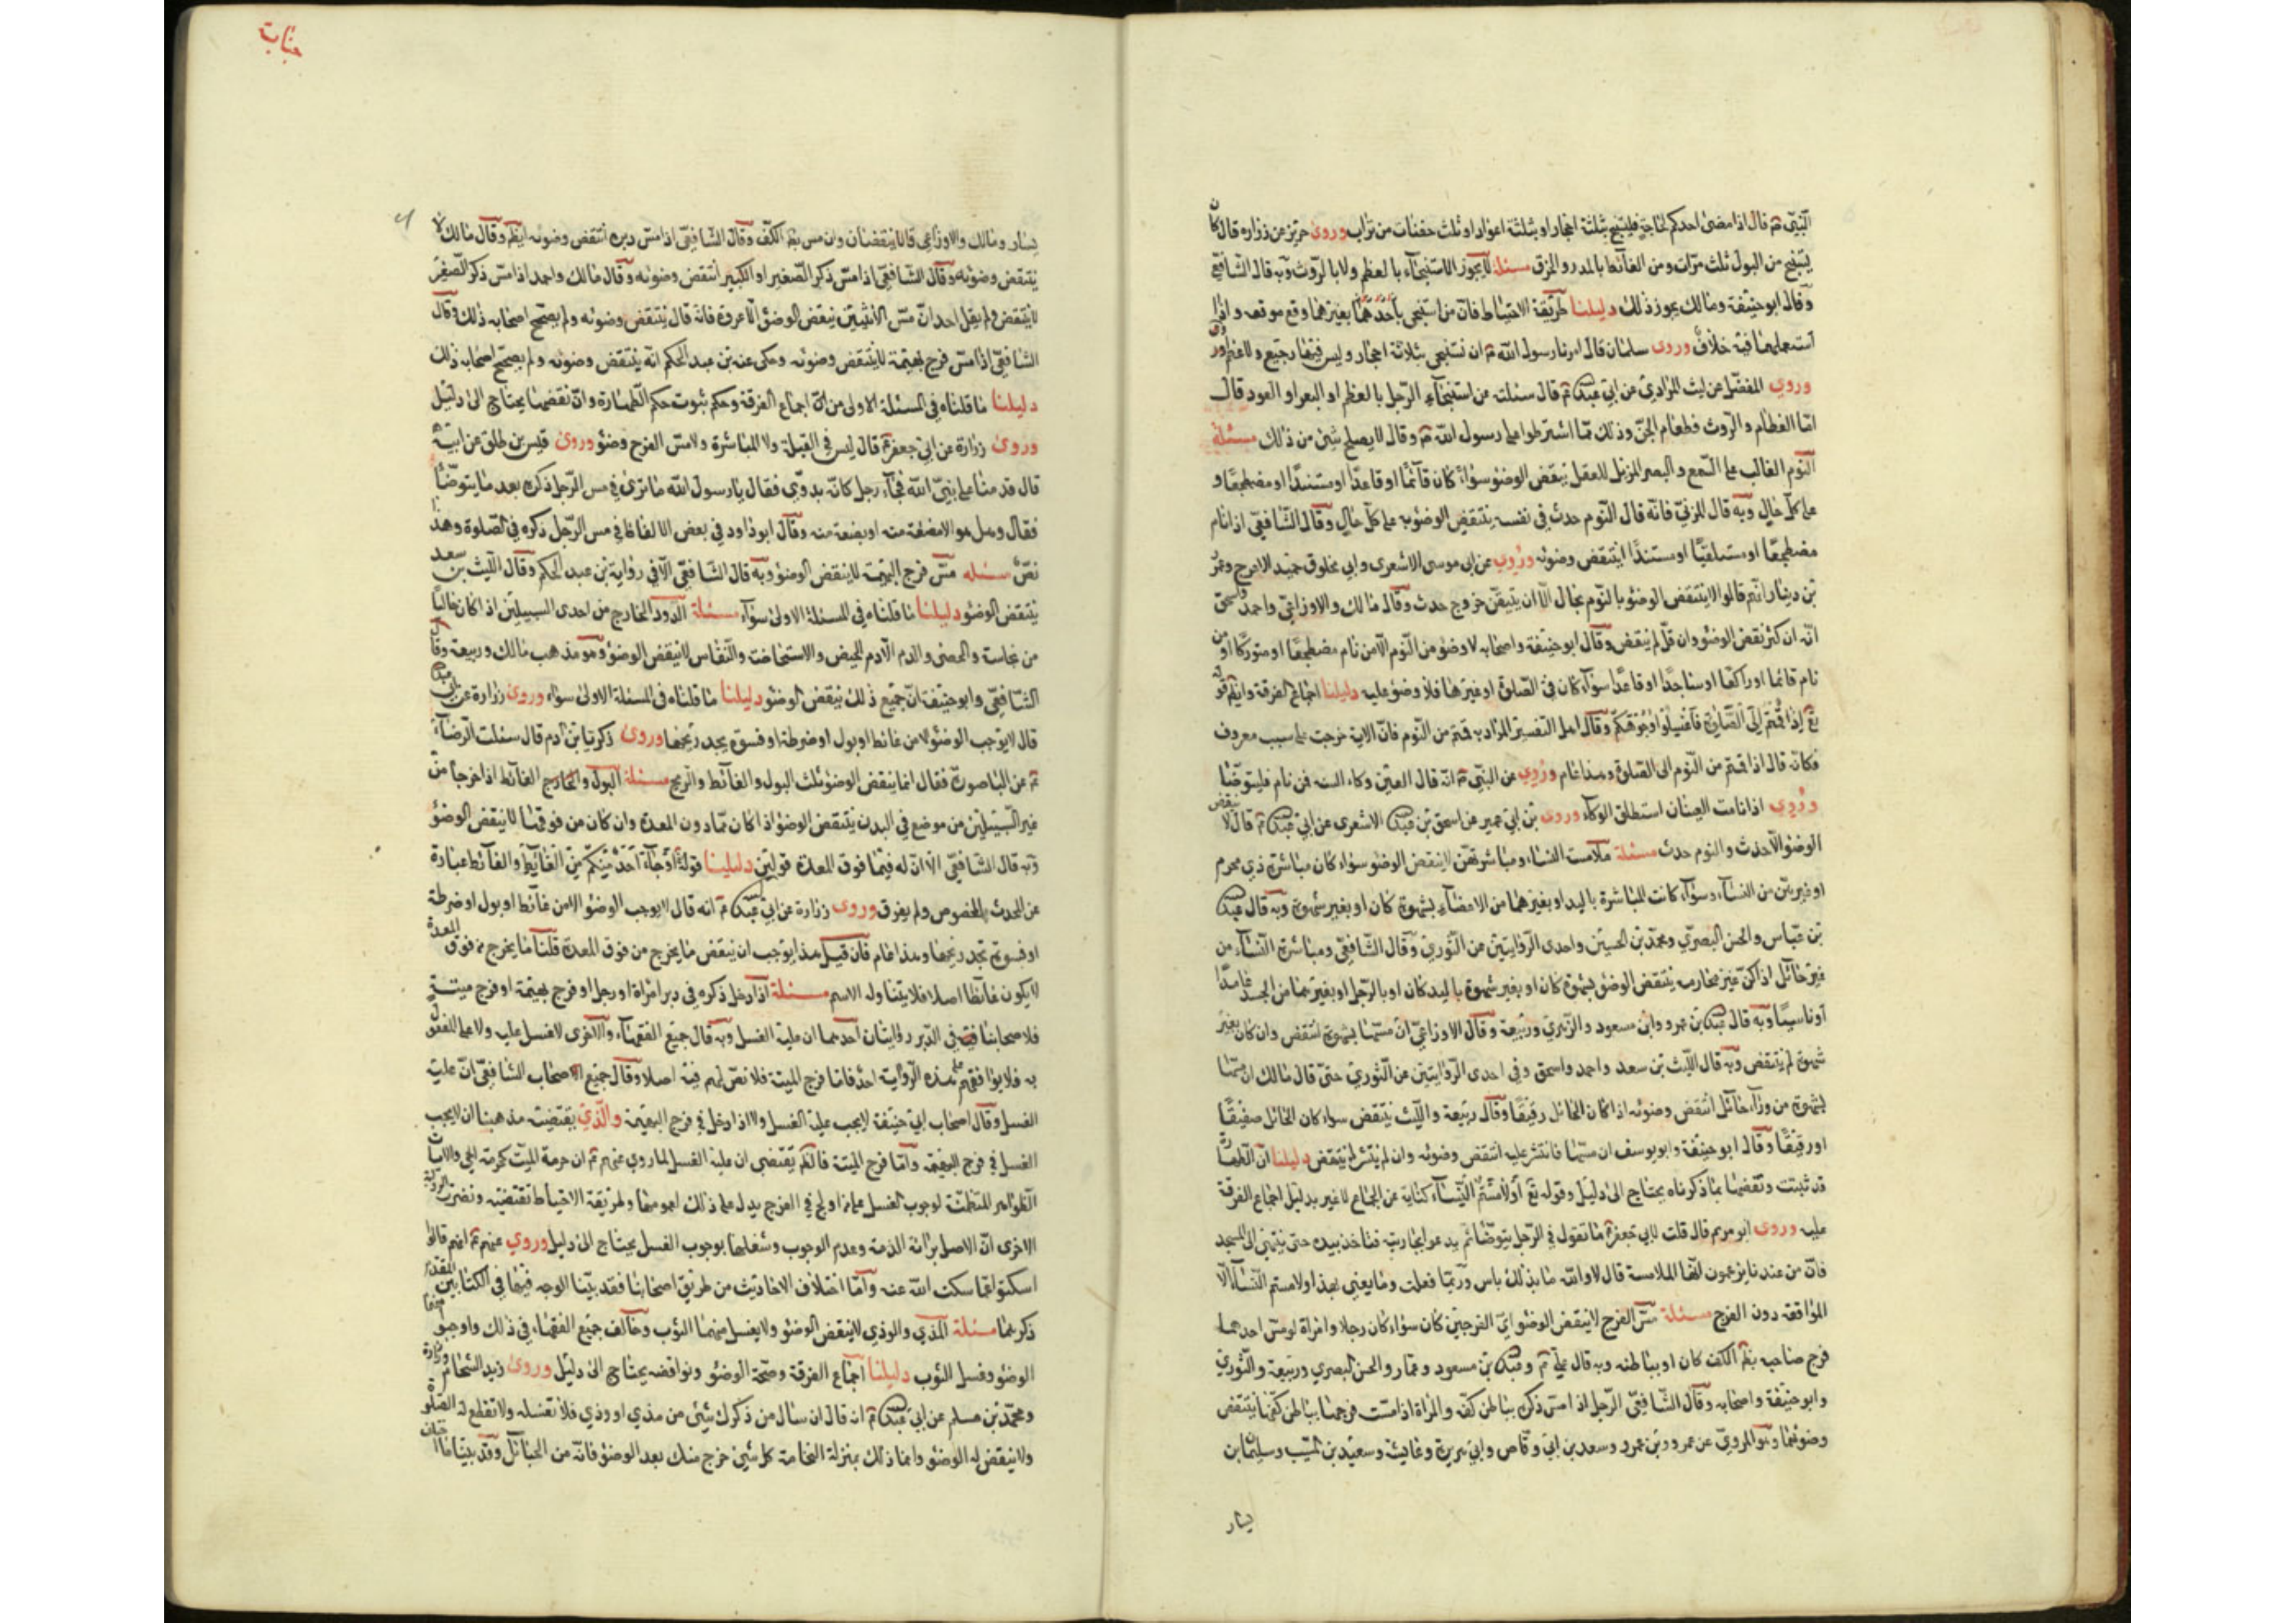 النبي ع قال اذا مضى احدكم لحاجة فليتمسح بثلثة احجار او بثلثة اعواد او ثلث حفنات من تراب وروى حريز عن زرارة قال كان
يستنجى من البول ثلث مرات ومن الغائط بالمدر والخرق مسئلة لا يجوز الاستنجاء بالعظم ولا بالروث وبه قال الشافعي
وقال ابو حنيفة ومالك يجوز ذلك دليلنا طريقة الاحتياط فان من استنجى باحدهما بغيرهما وقع موقعه واذا
استعملهما فيه خلاف وروى سلمان قال امرنا رسول الله ص ان نستنجي بثلاثة احجار وليس فيها رجيع ولا عظم
وروى المفضل عن ليث المرادي عن ابي عبد الله ع قال سئلته عن استنجاء الرجل بالعظم او البعر او العود قال
اما العظام والروث فطعام الجن وذلك مما اشترطوا على رسول الله ص وقال لا يصلح شئ من ذلك مسئلة
النوم الغالب على السمع والبصر المزيل للعقل ينقض الوضوء سواء كان قائما او قاعدا او مستندا او مضطجعا و
على كل حال وبه قال المزني فانه قال النوم حدث في نفسه ينتقض الوضوء به على كل حال وقال الشافعي اذا نام
مضطجعا او مستلقيا او مستندا انتقض وضوئه وروي عن ابي موسى الاشعري وابي مخلوق حميد الاعرج وعمر
بن دينار انهم قالوا لا ينتقض الوضوء بالنوم بحال الا ان يتيقن خروج حدث وقال مالك والاوزاعي واحمد واسحق
انه ان كثر نقض الوضوء وان قل لم ينقض وقال ابو حنيفة واصحابه لا وضوء من النوم الا من نام مضطجعا او متوركا او من
نام قائما او راكعا او ساجدا او قاعدا سواء كان في الصلوة او غيرها فلا وضوء عليه دليلنا اجماع الفرقة وايضا قوله
تع اذا قمتم الى الصلوة فاغسلوا وجوهكم وقال اهل التفسير المراد به قمتم من النوم فان الاية خرجت على سبب معروف
فكانه قال اذا قمتم من النوم الى الصلوة وهذا عام وروي عن النبي ص انه قال العين وكاء السه فمن نام فليتوضا
وروي اذا نامت العينان استطلق الوكاء وروى بن ابي عمير عن اسحق بن عبد الله الاشعري عن ابي عبد الله ع قال لا ينقض
الوضوء الا حدث والنوم حدث مسئلة ملامسة النساء ومباشرتهن لا ينقض الوضوء سواء كان مباشرة ذي محرم
او غيرهن من النساء وسواء كانت المباشرة باليد او بغيرها من الاعضاء بشهوة كان او بغير شهوة وبه قال عبد الله
بن عباس والحسن البصري ومحمد بن الحسين واحدى الروايتين عن الثوري وقال الشافعي ومباشرة النساء من
غير حائل اذا كن غير محارم ينتقض الوضوء بشهوة كان او بغير شهوة باليد كان او بالرجل او بغيرهما من الجسد عامدا
او ناسيا وبه قال عبد الله بن عمر وابن مسعود والزهري وربيعة وقال الاوزاعي ان مسها بشهوة انتقض وان كان بغير
شهوة لم ينتقض وبه قال الليث بن سعد واحمد واسحق وفي احدى الروايتين عن الثوري حتى قال مالك ان مسها
بشهوة من وراء حائل انتقض وضوئه اذا كان الحائل رقيقا وقال ربيعة والليث ينتقض سواء كان الحائل صفيقا
او رقيقا وقال ابو حنيفة وابو يوسف ان مسها فانتشر عليه انتقض وضوئه وان لم ينتشر لم ينتقض دليلنا ان الطهارة
قد ثبتت ونقضها بما ذكرناه يحتاج الى دليل وقوله تع او لامستم النساء كناية عن الجماع لا غير بدليل اجماع الفرقة
عليه وروى ابو مريم قال قلت لابي جعفر ع ما تقول في الرجل يتوضا ثم يدعو الجارية فتاخذ بيده حتى ينتهي الى المسجد
فان من عندنا يزعمون انها الملامسة قال لا والله ما بذلك باس وربما فعلت وما يعني بهذا ولامستم النساء الا
المواقعة دون الفرج مسئلة مس الفرج لا ينقض الوضوء اي الفرجين كان سواء كان رجلا وامراة او مس احدهما
فرج صاحبه بظهر الكف كان او بباطنه وبه قال علي ع وعبد الله بن مسعود وعمار والحسن البصري وربيعة والثوري
وابو حنيفة واصحابه وقال الشافعي الرجل اذا مس ذكره بباطن كفه والمراة اذا مست فرجها بباطن كفها انتقض
وضوئهما وهو المروي عن عمر وبن عمر وسعد بن ابي وقاص وابي هريرة وعايشة وسعيد بن المسيب وسليمان بن
يسار
جنابت
يسار ومالك والاوزاعي قالا ينتقضان وان مس بظهر الكف وقال الشافعي اذا مس دبره انتقض وضوئه ايضا وقال مالك لا
ينتقض وضوئه وقال الشافعي اذا مس ذكر الصغير او الكبير انتقض وضوئه وقال مالك واحمد اذا مس ذكر الصغير
لا ينتقض ولم يقل احد ان مس الانثيين ينقض الوضوء الا عروة فانه قال ينتقض وضوئه ولم يصحح اصحابه ذلك وقال
الشافعي اذا مس فرج بهيمة لا ينتقض وضوئه وحكى عنه بن عبد الحكم انه ينتقض وضوئه ولم يصحح اصحابه ذلك
دليلنا ما قلناه في المسئلة الاولى من اجماع الفرقة وحكم ثبوت حكم الطهارة وان نقضها يحتاج الى دليل
وروى زرارة عن ابي جعفر ع قال ليس في القبلة ولا المباشرة ولا مس الفرج وضوء وروى قيس بن طلق عن ابيه
قال قدمنا على نبي الله فجاء رجل كانه بدوي فقال يا رسول الله ما ترى في مس الرجل ذكره بعد ما يتوضا
فقال وهل هو الا مضغة منه او بضعة منه وقال ابو داود في بعض الالفاظ في مس الرجل ذكره في الصلوة وهذا
نص مسئله مس فرج البهيمة لا ينقض الوضوء وبه قال الشافعي الا في رواية بن عبد الحكم وقال الليث بن سعد
ينتقض الوضوء دليلنا ما قلناه في المسئلة الاولى سواء مسئلة الدود الخارج من احدى السبيلين اذا كان خاليا
من نجاسة والحصى والدم الا دم الحيض والاستحاضة والنفاس لا ينقض الوضوء وهو مذهب مالك وربيعة وقال
الشافعي وابو حنيفة ان جميع ذلك ينقض الوضوء دليلنا ما قلناه في المسئلة الاولى سواء وروى زرارة عن ابي عبد الله
قال لا يوجب الوضوء الا من غائط او بول او ضرطة او فسوة يجد ريحها وروى زكريا بن ادم قال سئلت الرضا
ع عن الناصور فقال انما ينقض الوضوء ثلث البول والغائط والريح مسئلة البول والخارج الغائط اذا خرجا من
غير السبيلين من موضع في البدن ينتقض الوضوء اذا كان مما دون المعدة وان كان من فوقها لا ينقض الوضوء
وبه قال الشافعي الا ان له فيما فوق المعدة قولين دليلنا قوله او جاء احد منكم من الغائط والغائط عبارة
عن الحدث المخصوص ولم يفرق وروى زرارة عن ابي عبد الله ع انه قال لا يوجب الوضوء الا من غائط او بول او ضرطة
او فسوة تجد ريحها وهذا عام فان قيل هذا يوجب ان ينقض ما يخرج من فوق المعدة قلنا ما يخرج من فوق المعدة
لا يكون غائطا اصلا فلا يتناوله الاسم مسئلة اذا دخل ذكره في دبر امراة او رجل او فرج بهيمة او فرج ميتة
فلاصحابنا في الدبر روايتان احدهما ان عليه الغسل وبه قال جميع الفقهاء والاخرى لا غسل عليه ولا على المفعول
به فلا يوافقهم على هذه الرواية احد فاما فرج الميتة فلا نص لهم فيه اصلا وقال جميع اصحاب الشافعي ان عليه
الغسل وقال اصحاب ابي حنيفة لا يجب عليه الغسل ولا اذا دخل في فرج البهيمة والذي يقتضيه مذهبنا ان لا يجب
الغسل في فرج البهيمة واما فرج الميتة فالظاهر يقتضي ان عليه الغسل لما روي عنهم ع ان حرمة الميت كحرمة الحي والاخبار
الظواهر المتضمنة لوجوب الغسل على من اولج في الفرج يدل على ذلك لعمومها وطريقة الاحتياط تقتضيه ونصرة الرواية
الاخرى ان الاصل برائة الذمة وعدم الوجوب وشغلها بوجوب الغسل يحتاج الى دليل وروي عنهم ع انهم قالوا
اسكتوا عما سكت الله عنه واما اختلاف الاحاديث من طريق اصحابنا فقد بينا الوجه فيها في الكتابين المقدم
ذكرهما مسئلة المذي والوذي لا ينقض الوضوء ولا يغسل منهما الثوب وخالف جميع الفقهاء في ذلك واوجبوا منهما
الوضوء وغسل الثوب دليلنا اجماع الفرقة وصحة الوضوء ونواقضه يحتاج الى دليل وروى زيد الشحام وزرارة
ومحمد بن مسلم عن ابي عبد الله ع انه قال ان سال من ذكرك شئ من مذي او وذي فلا تغسله ولا تقطع له الصلوة
ولا ينقض له الوضوء وانما ذلك بمنزلة النخامة كل شئ خرج منك بعد الوضوء فانه من الحبائل وقد بينا ما